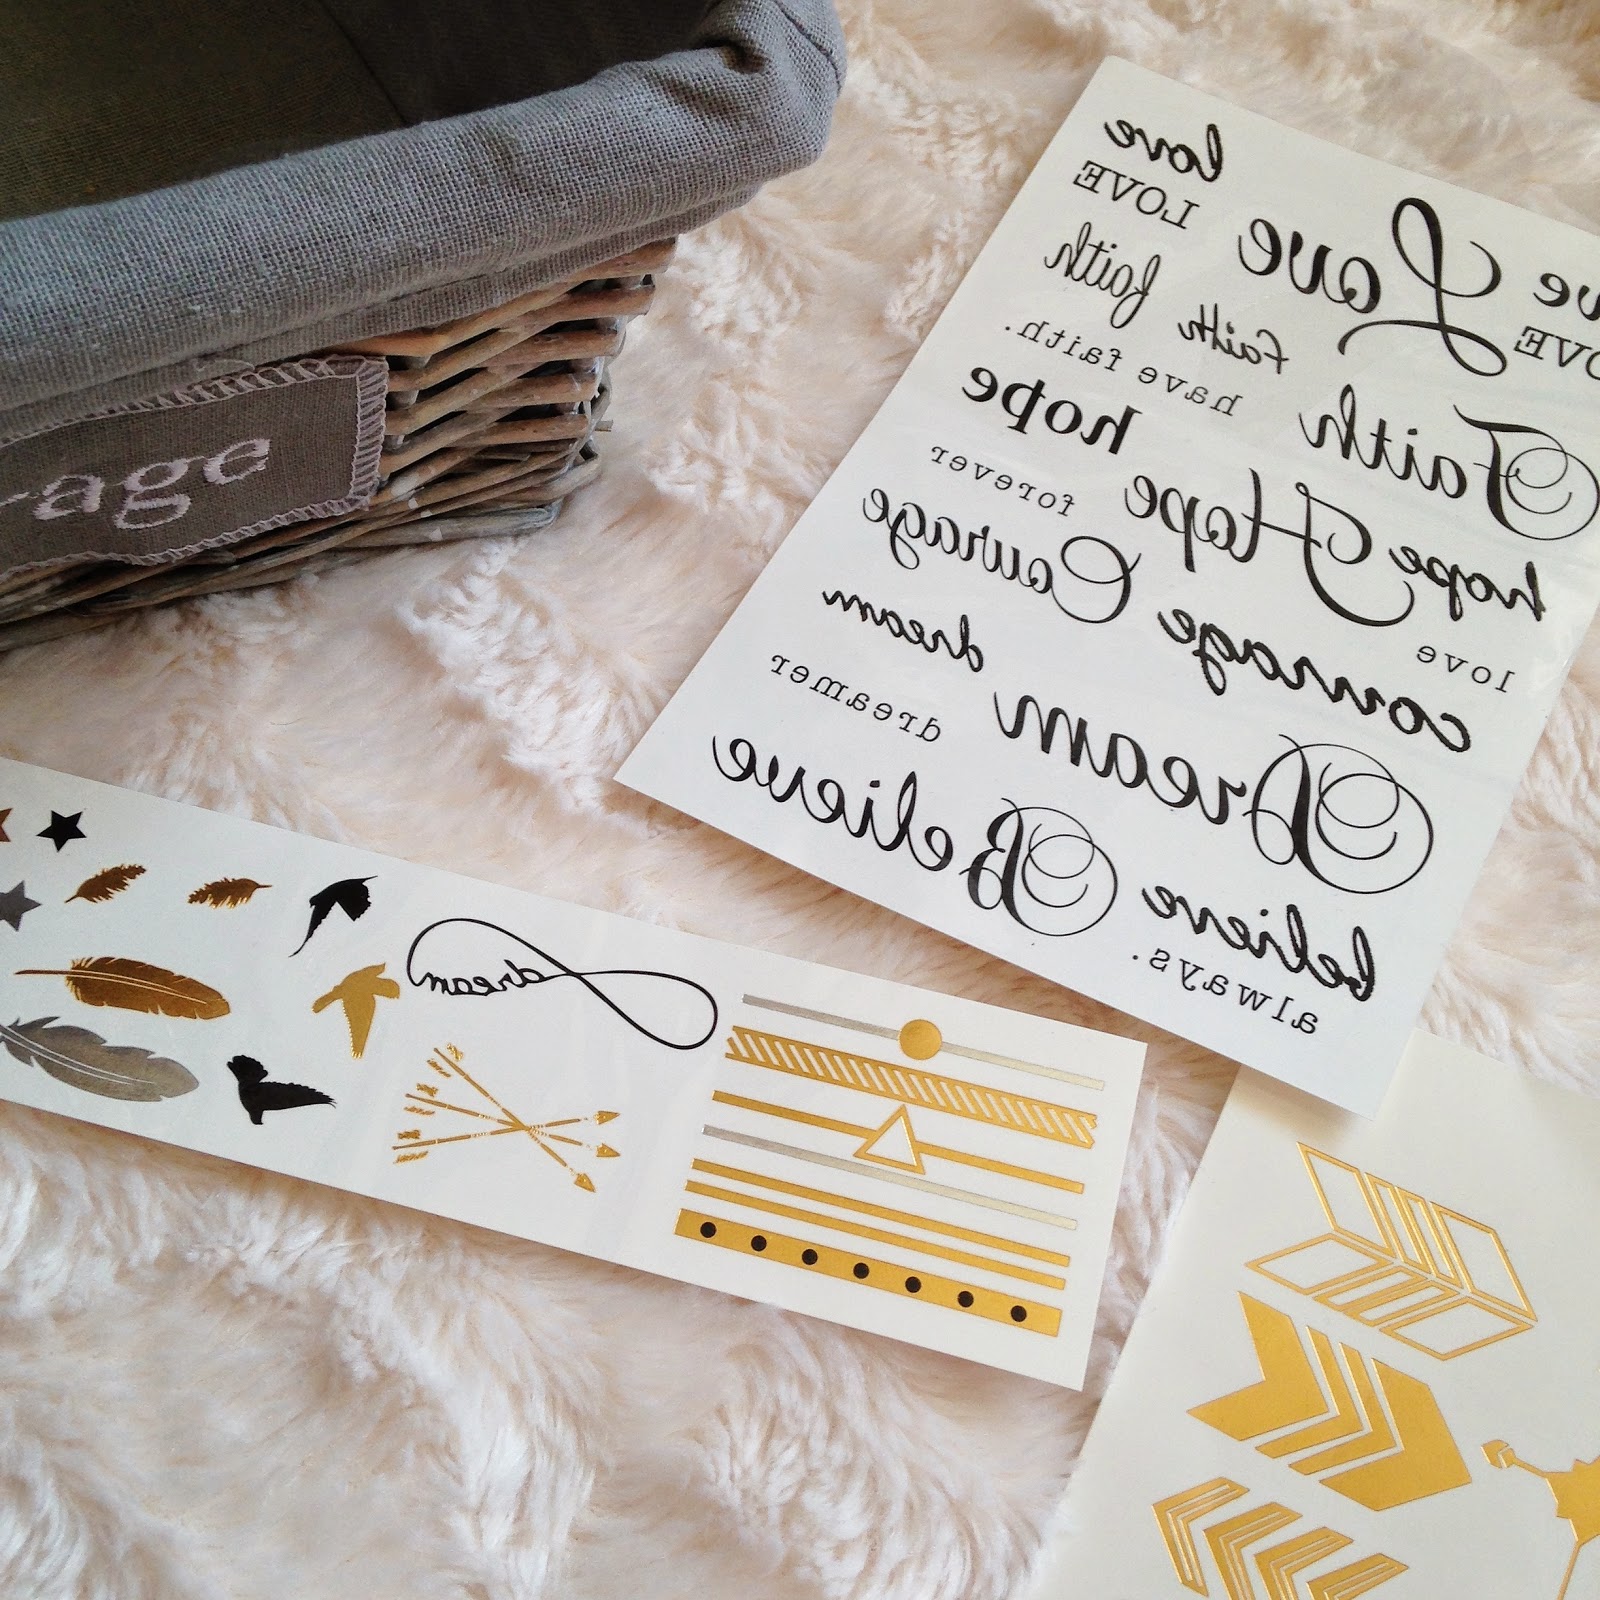 rage
love
LOVE
Love
ve
OVE
faith faith Faith
have faith.
Faith
hope
Hope
hope
forever
love
Courage
courage
dream
dreamer
Dream
Believe
believe
always.
dream